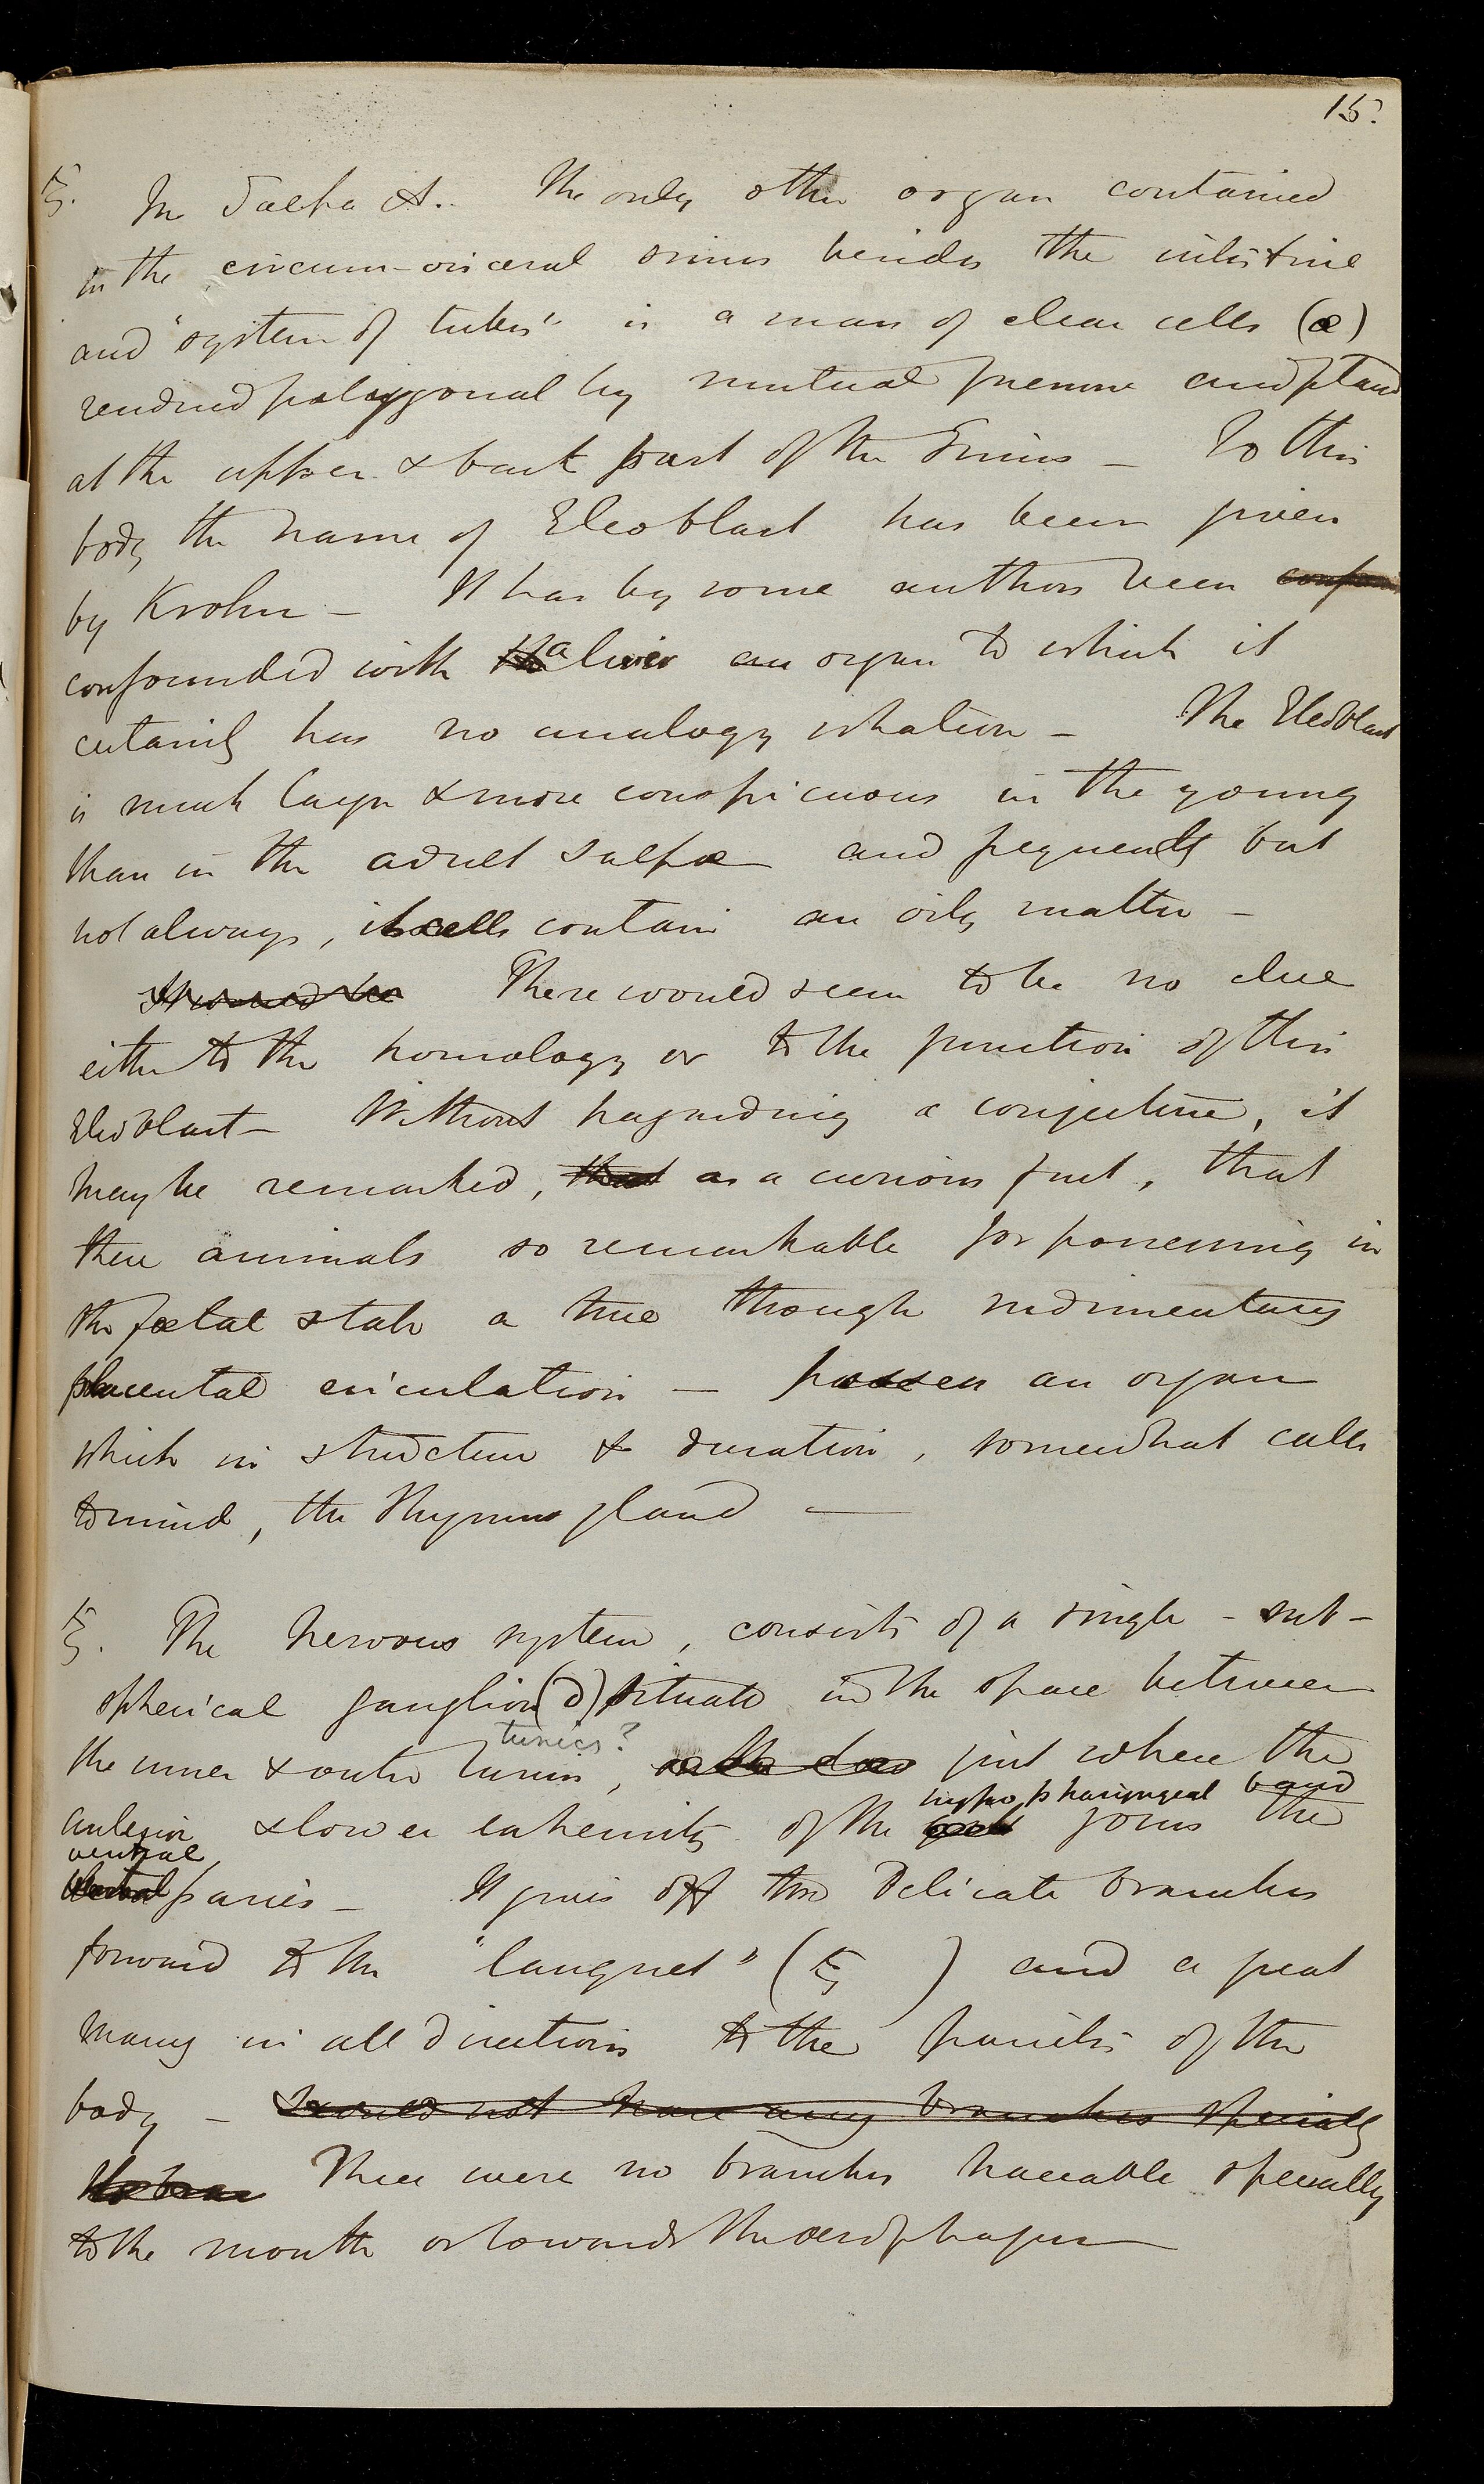 15.
§. In Salpa A. The only other organ contained
in the circum-visceral sinus besides the intestine
and "system of tubes" is a mass of clear cells (æ)
rendered polygonal by mutual pressure and placed
at the upper & back part of the Sinus – To this
body the name of Eleoblast has been given
by Krohn – It has by some authors been
confounded with the a liver an organ to which it
certainly has no analogy whatever – The Eleoblast
is much larger & more conspicuous in the young
than in the adult Salpæ and frequently but
not always, its cells contain an oily matter –
It would be There would seem to be no clue
either to the homology or to the function of this
Eleoblast – Without hazarding a conjecture, it
may be remarked, that as a curious fact, that
these animals so remarkable for possessing in
the fœtal state a true though rudimentary
placental circulation – possess an organ
which in structure & duration, somewhat calls
to mind, the Thymus gland —
§. The nervous system, consists of a single – sub-
spherical ganglion (d) situate in the space between
tunics?
the inner & outer tunics, just where the
hypopharyngeal band
anterior & lower extremity of the joins the
ventral
paries – It gives off two delicate branches
forward to the "languet" (§ ) and a great
many in all directions to the parietes of the
body – I could not trace any branches specially
There were no branches traceable specially
to the mouth or towards the œsophagus —